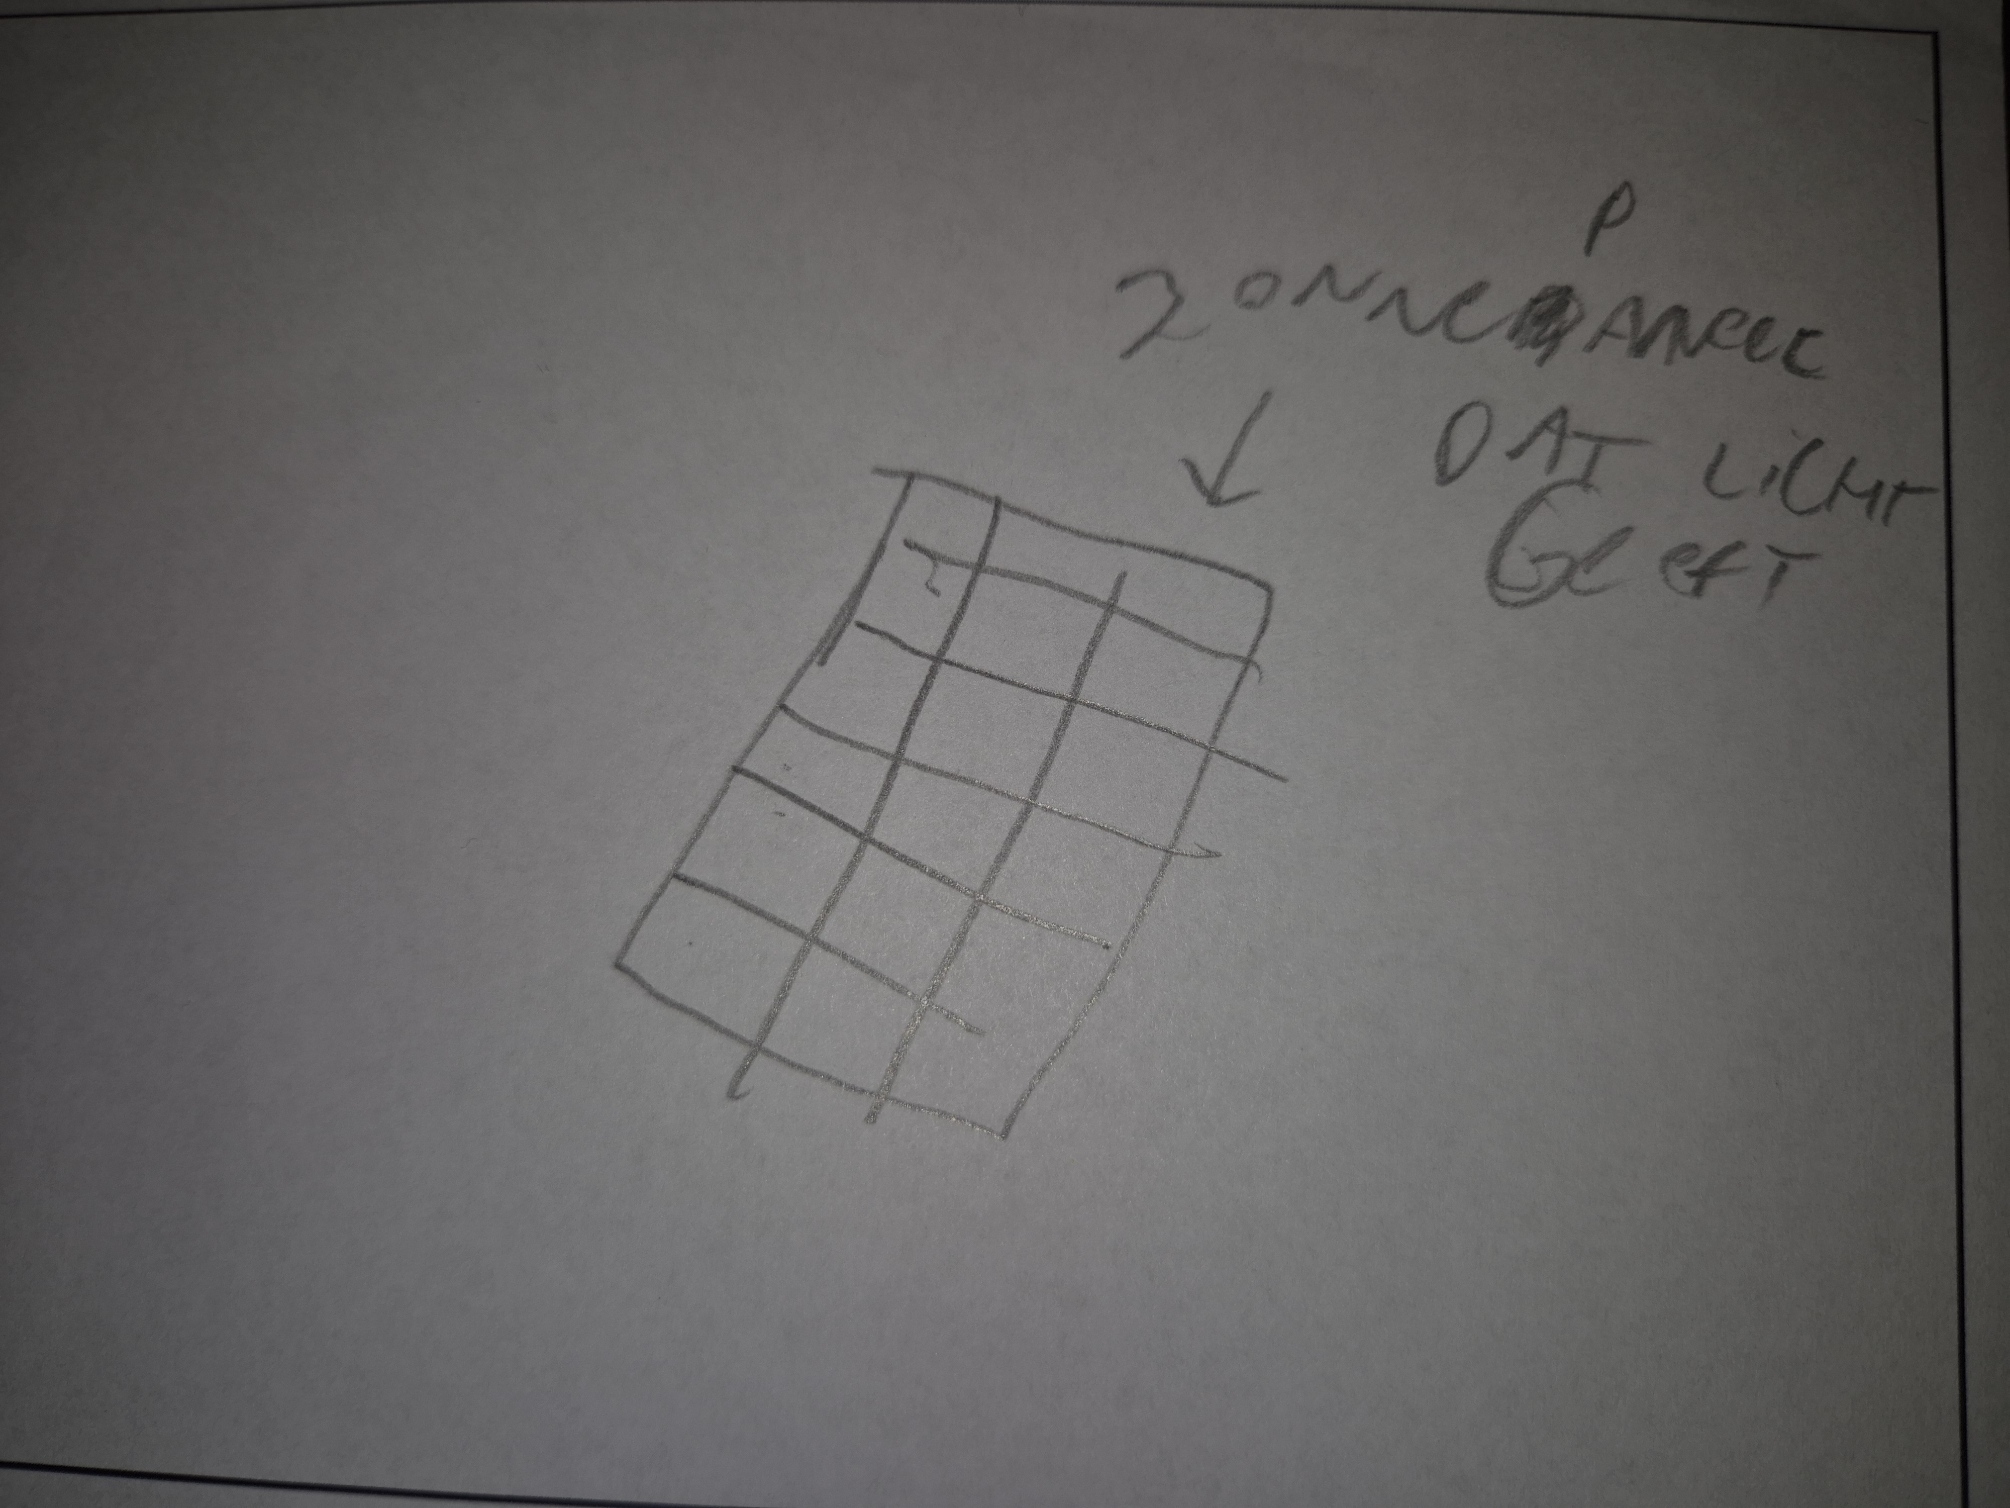 P
ZONNEPANEEL
DAT LICHT
GEEFT